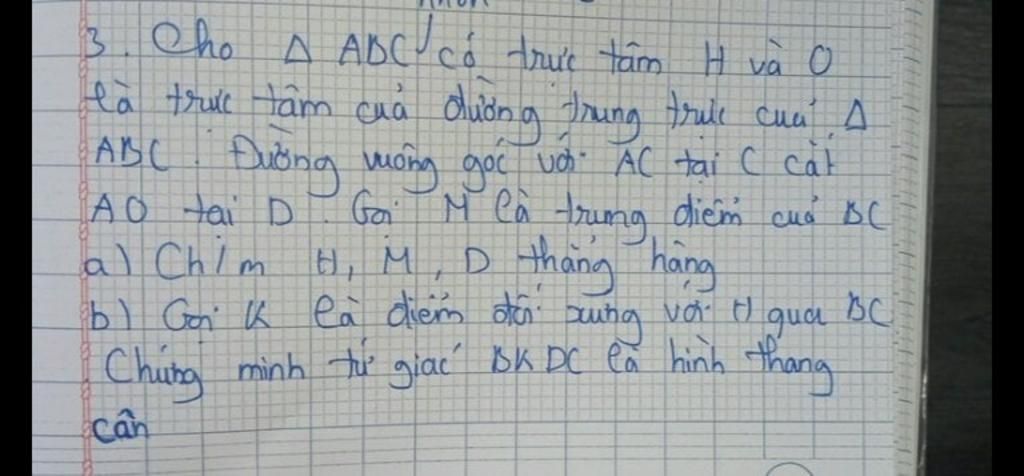 3. Cho Δ ABC có trực tâm H và O
là trực tâm cuả đường trung trực cuả Δ
ABC. Đường vuông góc với AC tại C cắt
AO tại D. Gọi M là trung điểm cuả BC
a) C/m H, M, D thẳng hàng
b) Gọi K là điểm đối xứng với H qua BC
Chứng minh tứ giác BKDC là hình thang
cân